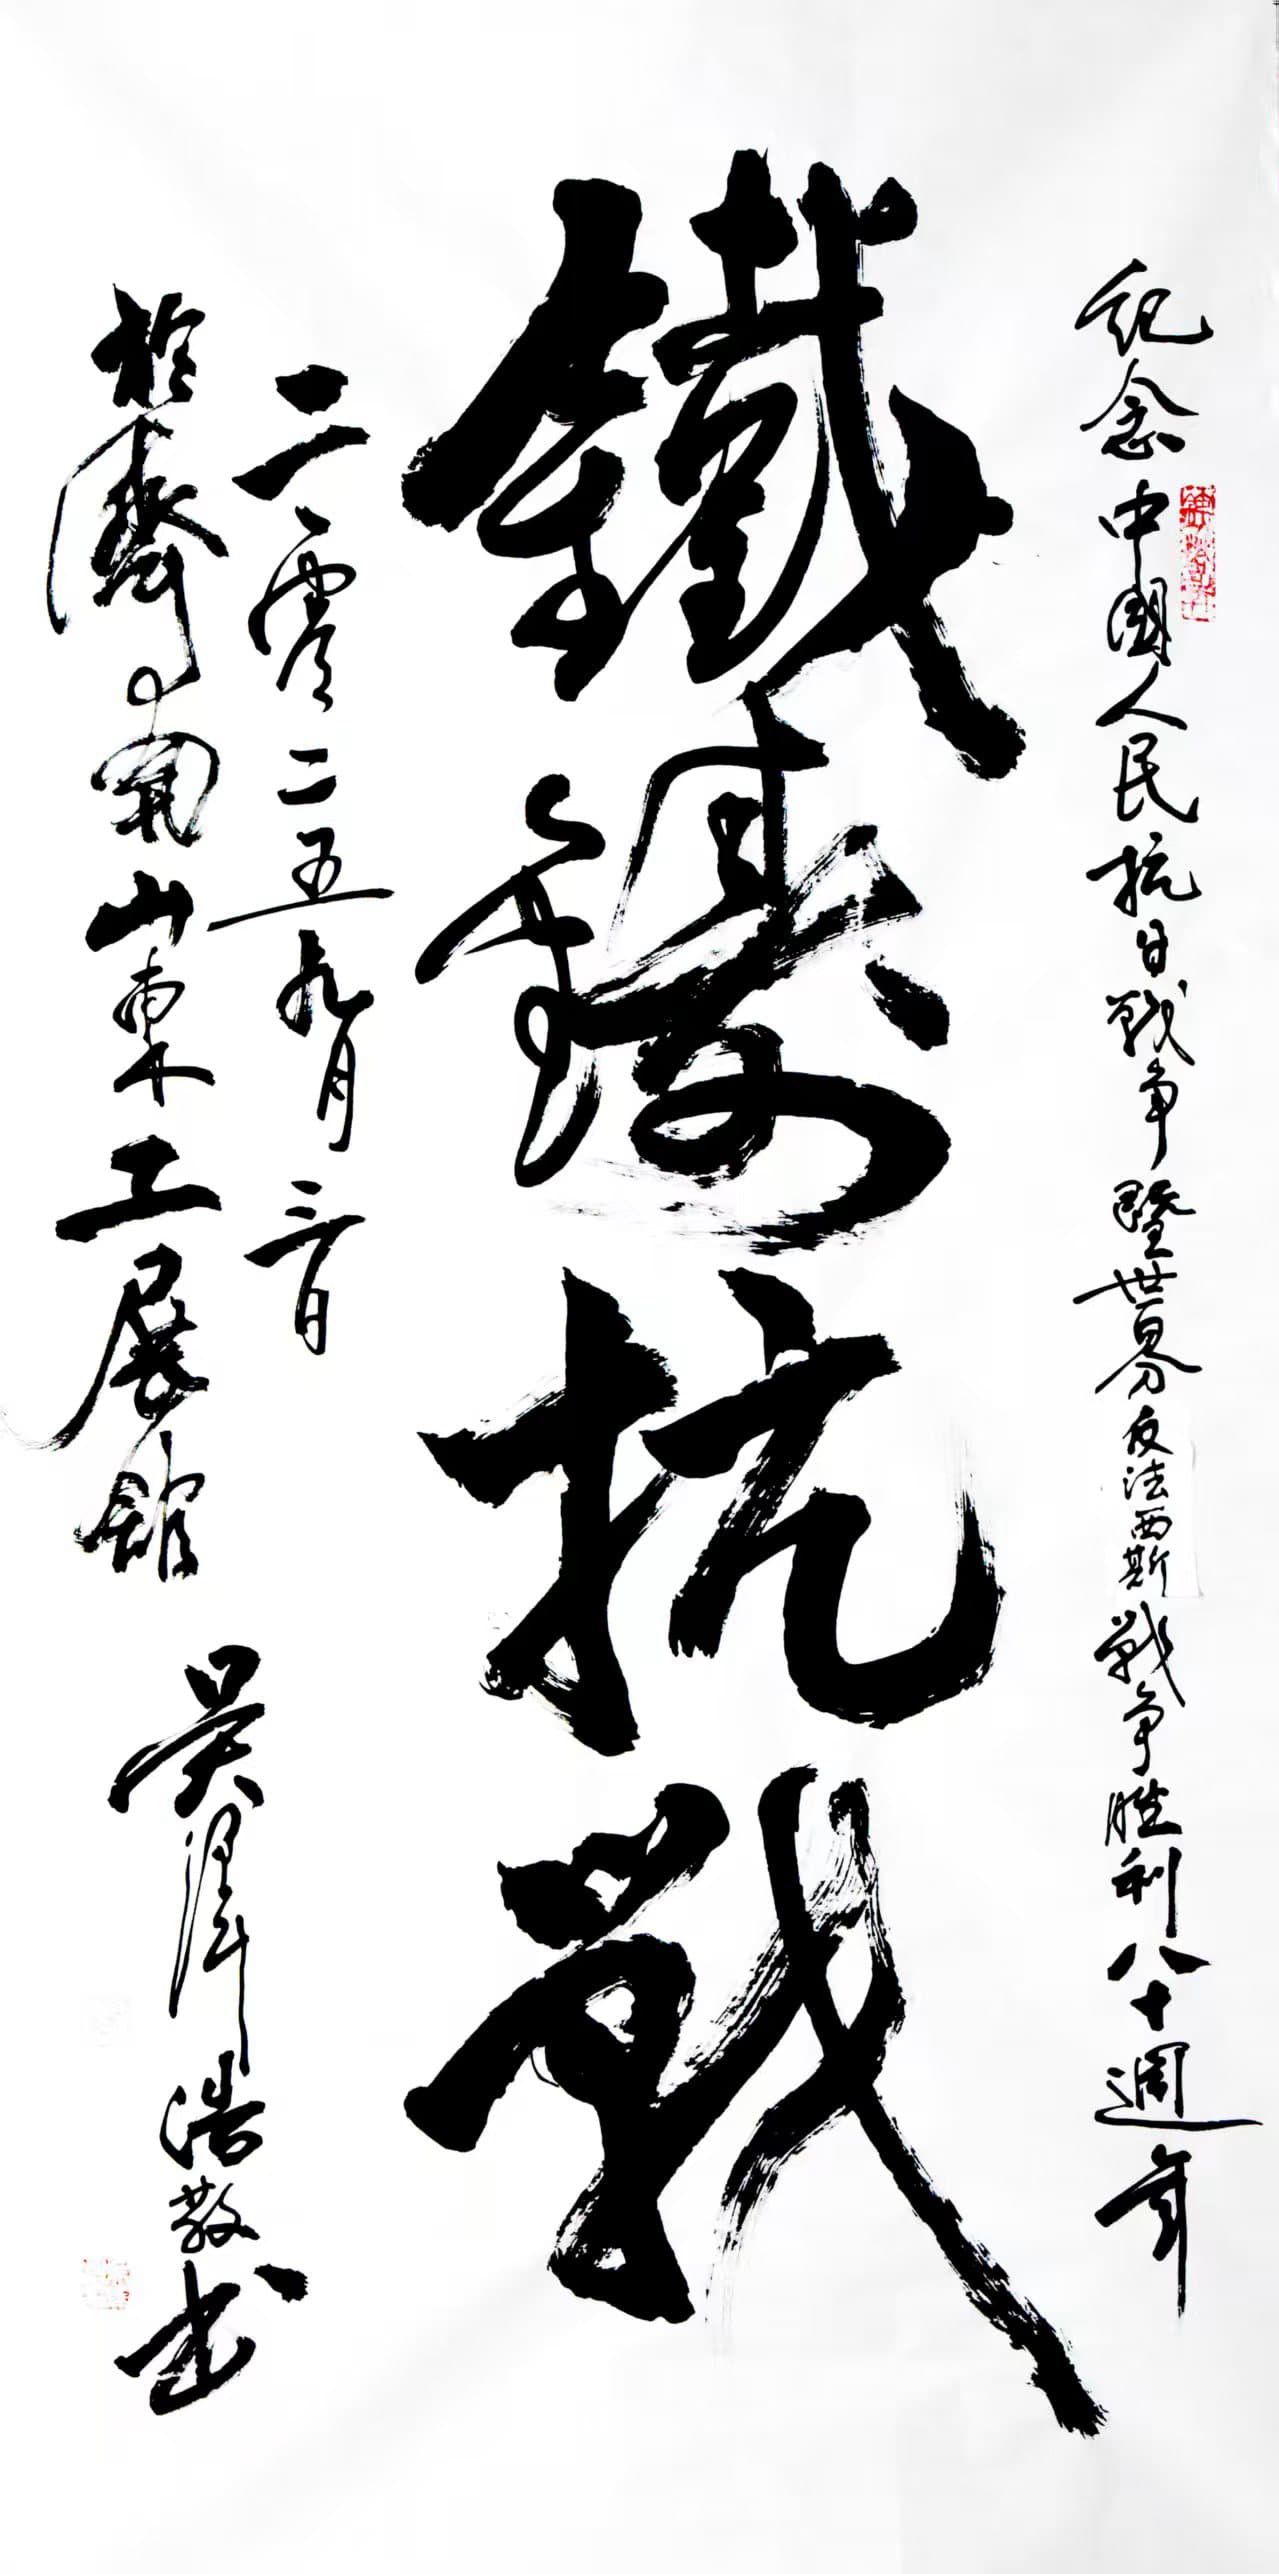 紀念中國人民抗日戰争暨世界反法西斯戰争勝利八十週年
鐵鑄抗戰
二零二五九月三日
於濟南山東工展館
吴澤浩敬書